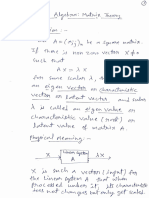 Algebra: Matrix Theory
Let A = [aij]n be a square matrix
If there is non zero vector X ≠ 0
such that
AX = λX
For some scalar λ,
an eigen vector or characteristic
vector or latent vector and
λ is called an eigen value or
characteristic value (root) or
latent value of matrix A
Physical meaning:-
X
A
λX
X is such a vector (input) for
the linear system A that when
processed under it, its characteristic
does not changes but only get scaled.